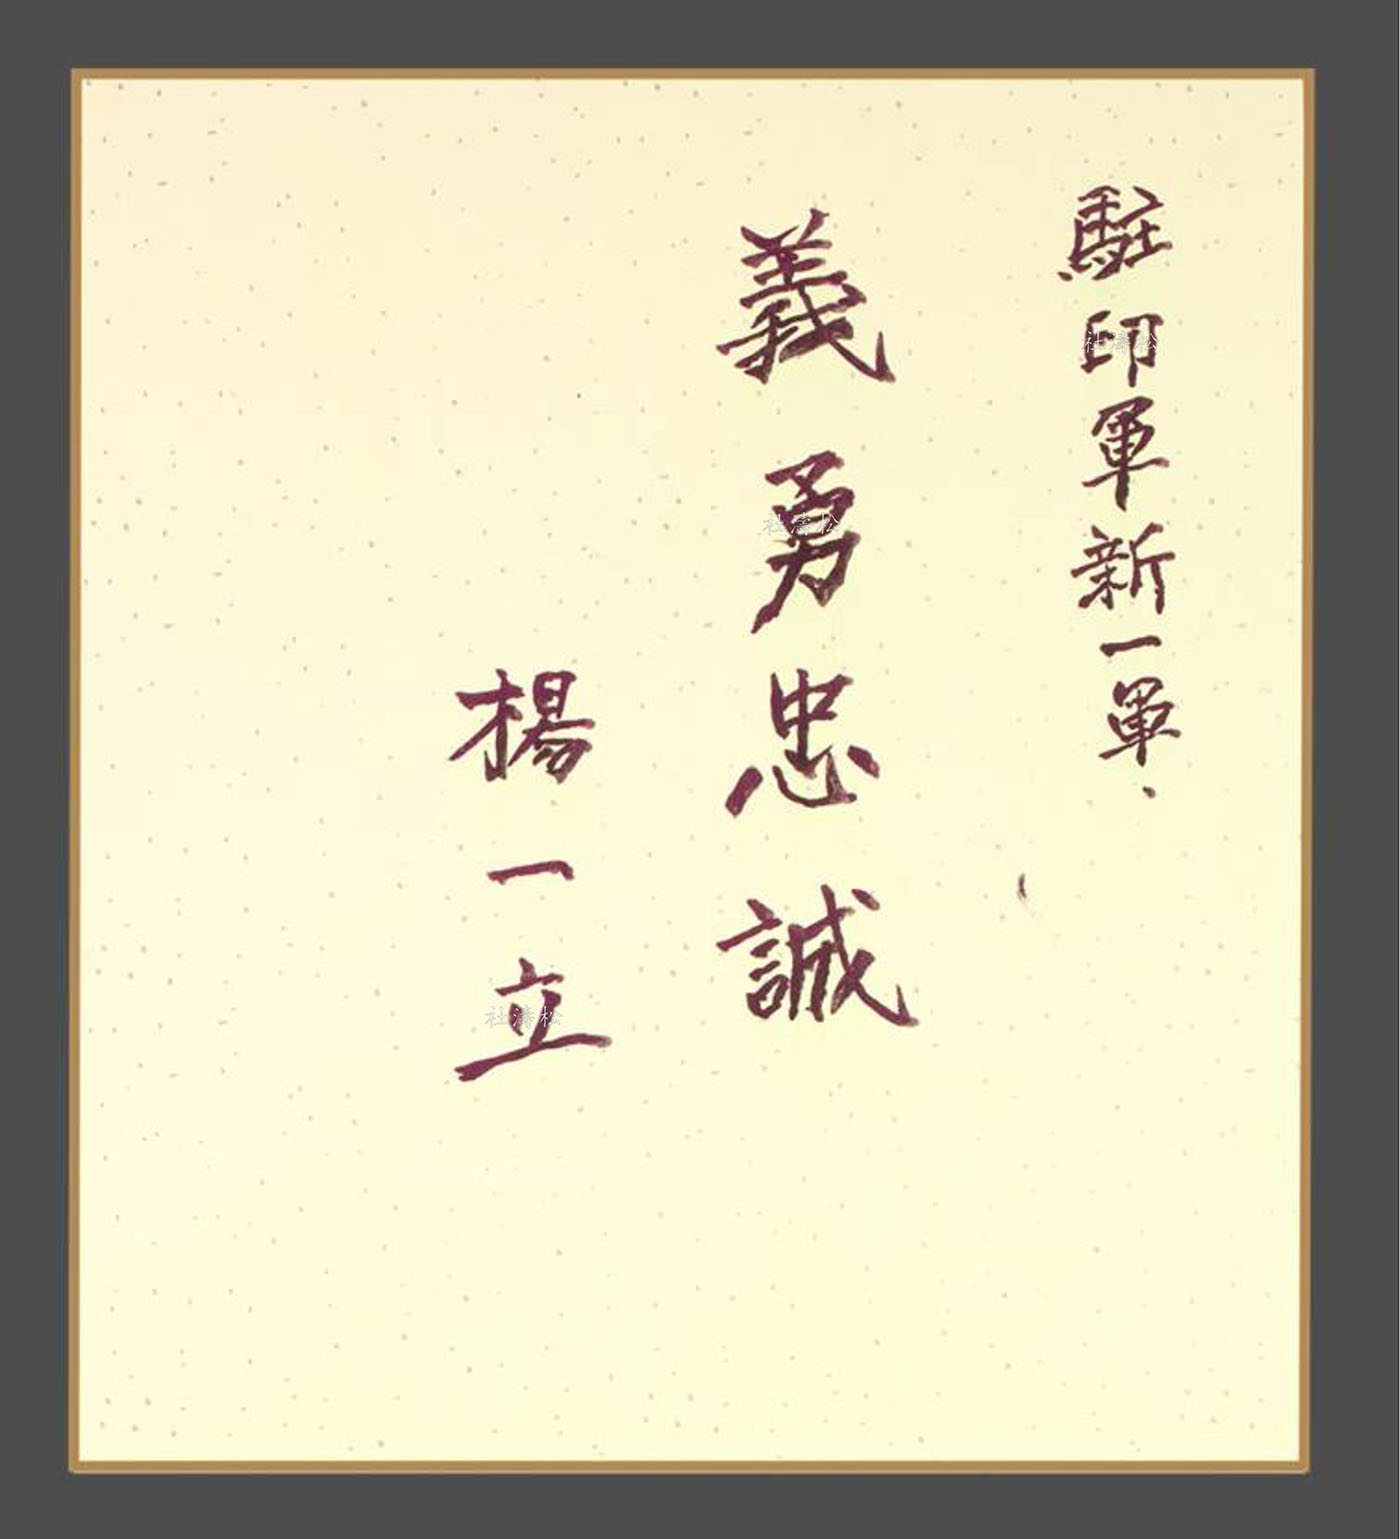 駐印軍新一軍、
義勇忠誠
楊一立
社濤松
社濤松
社濤松